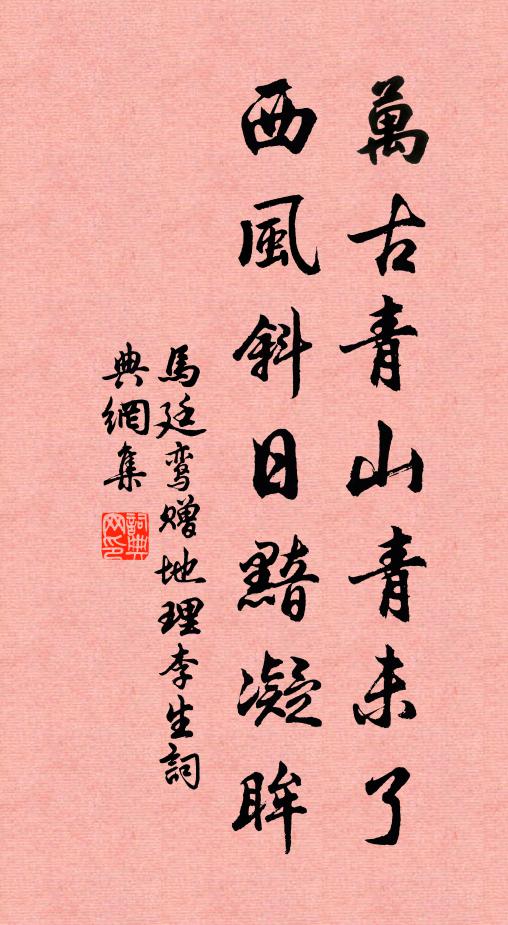 萬古青山青未了
西風斜日黯凝眸
馬廷鸾贈地理李生詞
典網集
詞典网印